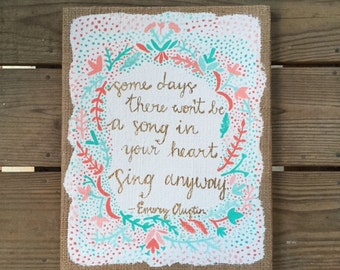 some days
there won't be
a song in
your heart.
Sing anyway.
- Emory Austin